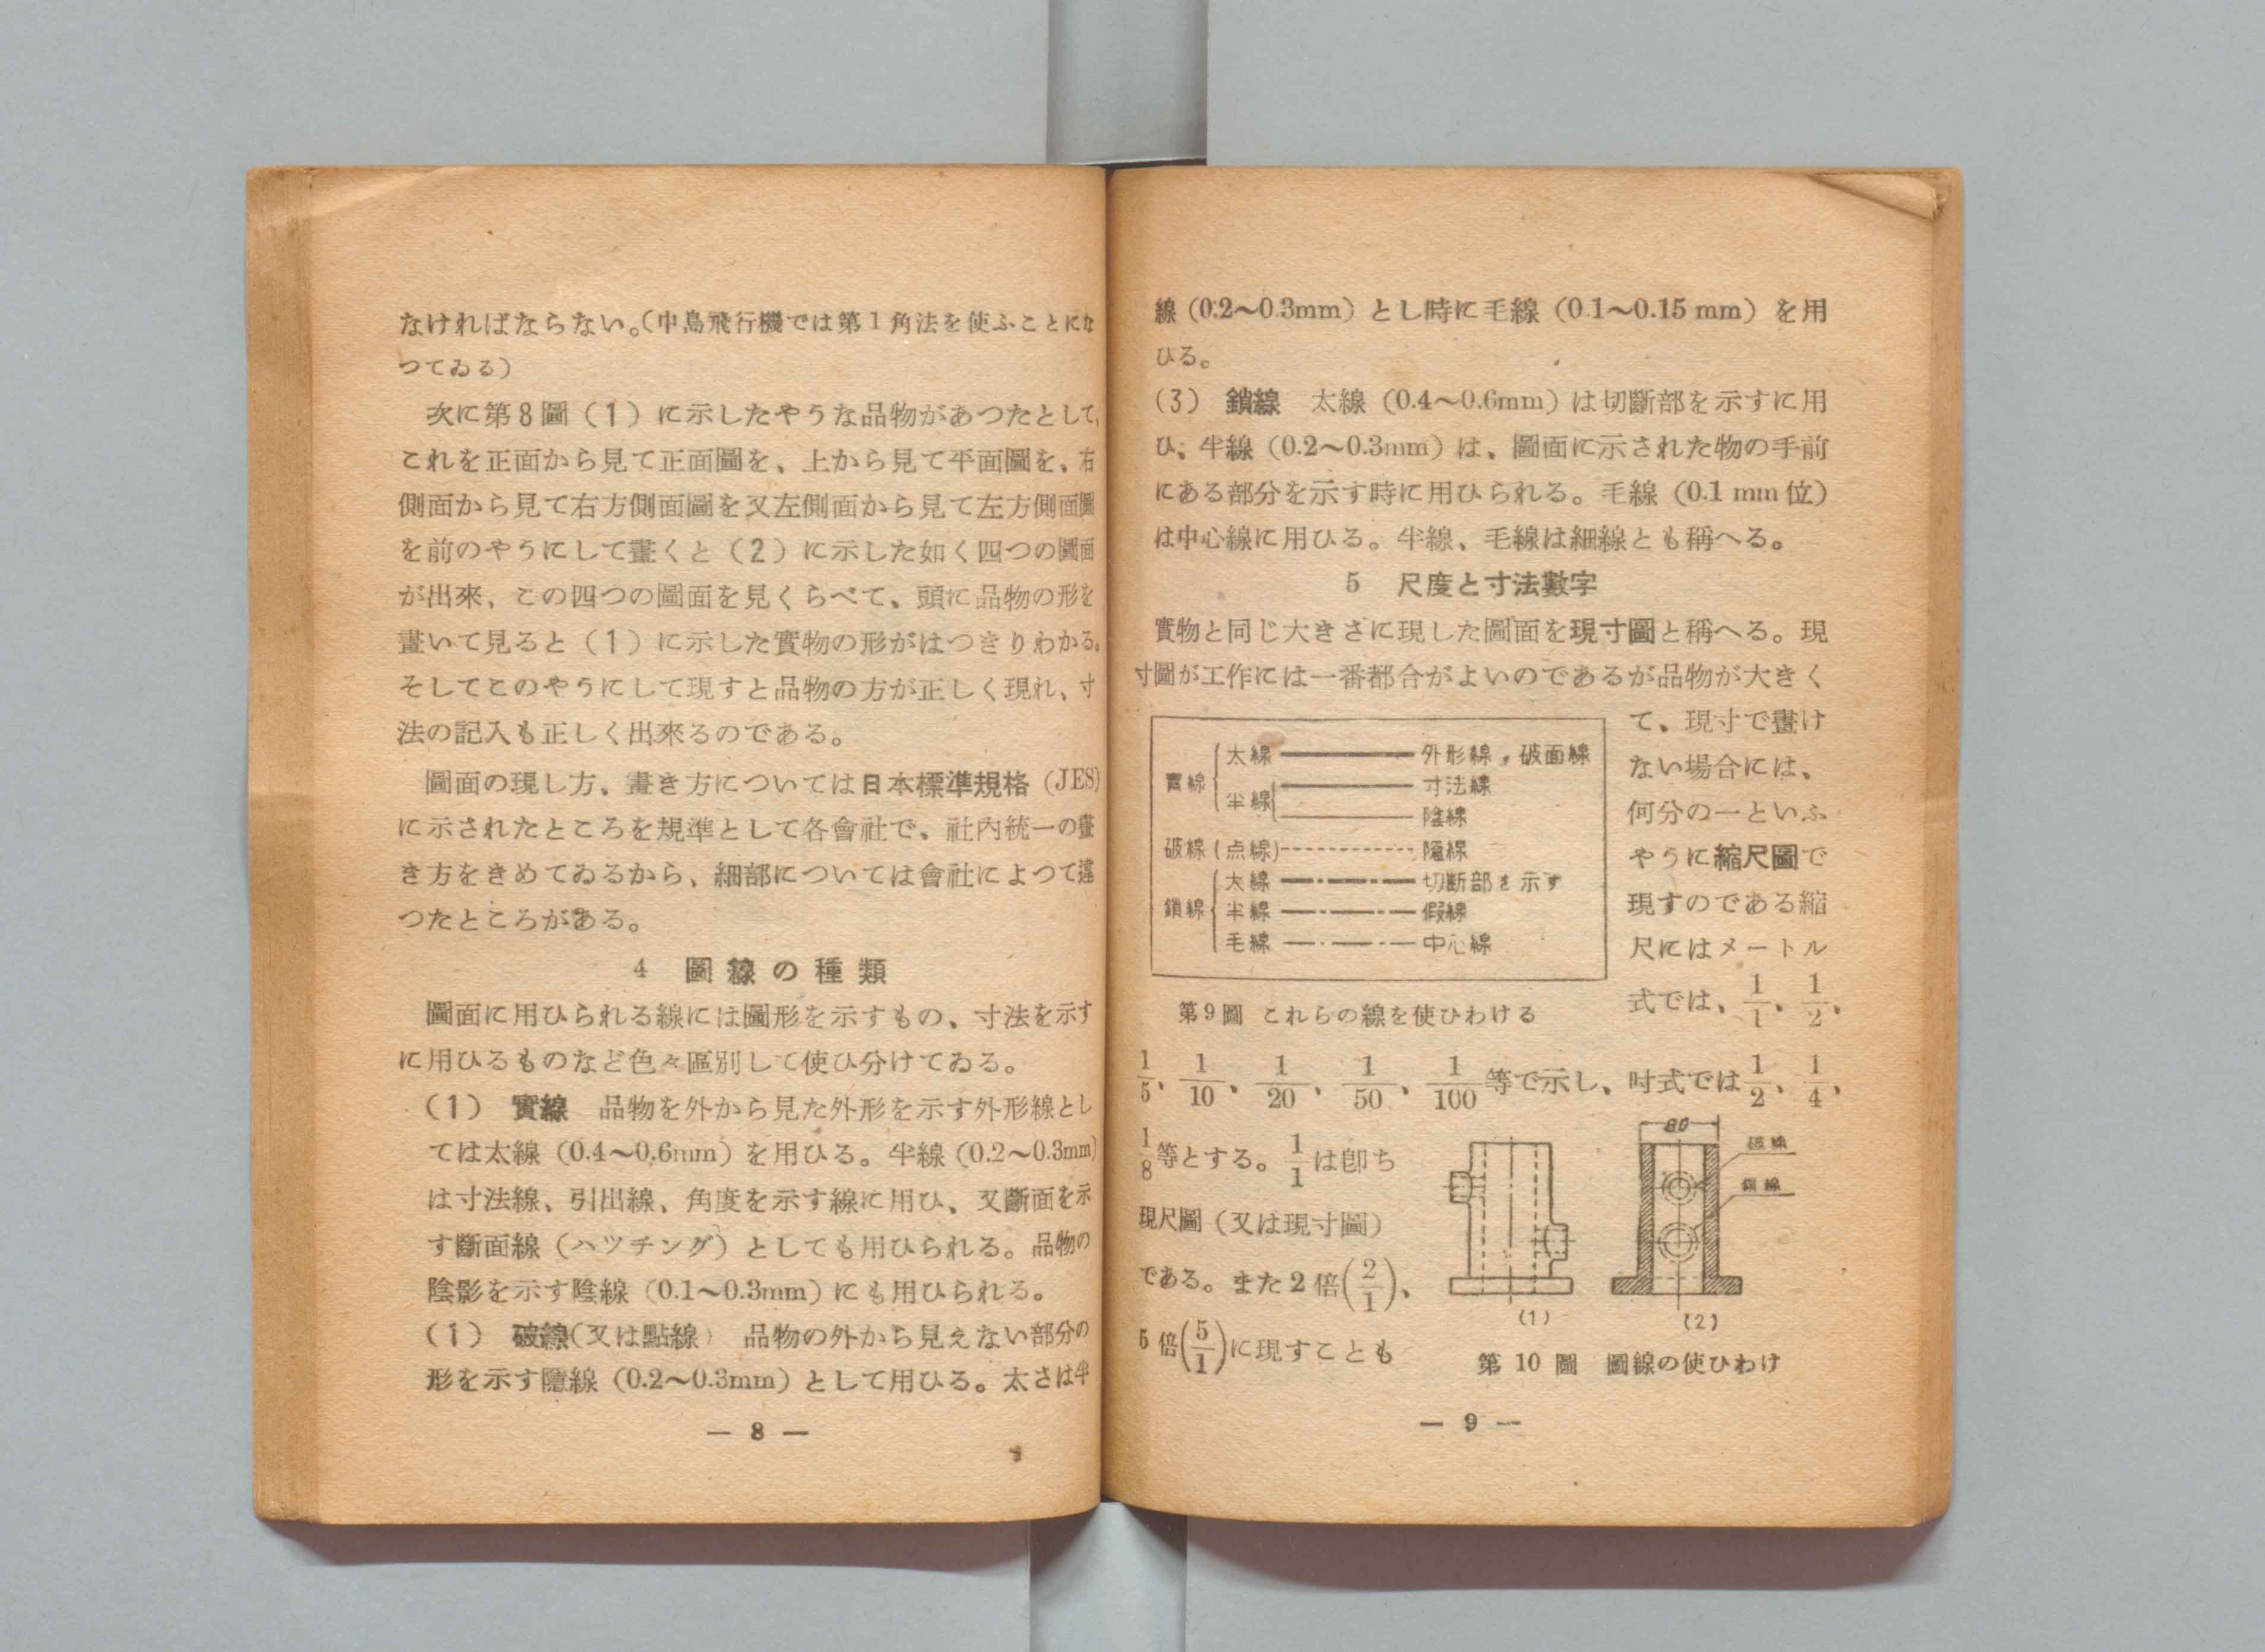 なければならない。（中島飛行機では第１角法を使ふことにな
つてゐる）
次に第８圖（１）に示したやうな品物があつたとして、
これを正面から見て正面圖を、上から見て平面圖を、右
側面から見て右方側面圖を又左側面から見て左方側面圖
を前のやうにして畫くと（２）に示した如く四つの圖面
が出來、この四つの圖面を見くらべて、頭に品物の形を
畫いて見ると（１）に示した實物の形がはつきりわかる。
そしてこのやうにして現すと品物の方が正しく現れ、寸
法の記入も正しく出來るのである。
圖面の現し方、畫き方については日本標準規格（JES）
に示されたところを規準として各會社で、社內統一の畫
き方をきめてゐるから、細部については會社によつて違
つたところがある。
4　圖線の種類
圖面に用ひられる線には圖形を示すもの、寸法を示す
に用ひるものなど色々區別して使ひ分けてゐる。
（1）　實線　品物を外から見た外形を示す外形線とし
ては太線（0.4〜0.6mm）を用ひる。半線（0.2〜0.3mm）
は寸法線、引出線、角度を示す線に用ひ、又斷面を示
す斷面線（ハツチング）としても用ひられる。品物の
陰影を示す陰線（0.1〜0.3mm）にも用ひられる。
（1）　破線（又は點線）　品物の外から見えない部分の
形を示す隱線（0.2〜0.3mm）として用ひる。太さは半
— 8 —
線（0.2〜0.3mm）とし時に毛線（0.1〜0.15 mm）を用
ひる。
（3）　鎖線　太線（0.4〜0.6mm）は切斷部を示すに用
ひ、半線（0.2〜0.3mm）は、圖面に示された物の手前
にある部分を示す時に用ひられる。毛線（0.1 mm 位）
は中心線に用ひる。半線、毛線は細線とも稱へる。
5　尺度と寸法數字
實物と同じ大きさに現した圖面を現寸圖と稱へる。現
寸圖が工作には一番都合がよいのであるが品物が大きく
て、現寸で畫け
ない場合には、
何分の一といふ
やうに縮尺圖で
現すのである縮
尺にはメートル
式では、1/1、1/2、
實線
太線　外形線，破面線
半線　寸法線
陰線
破線（点線）　隱線
鎖線
太線　切断部を示す
半線　假線
毛線　中心線
第9圖　これらの線を使ひわける
1/5、1/10、1/20、1/50、1/100等で示し、吋式では1/2、1/4、
1/8等とする。1/1は卽ち
現尺圖（又は現寸圖）
である。また2倍(2/1)、
5倍(5/1)に現すことも
80
破線
鎖線
(1)
(2)
第 10 圖　圖線の使ひわけ
— 9 —